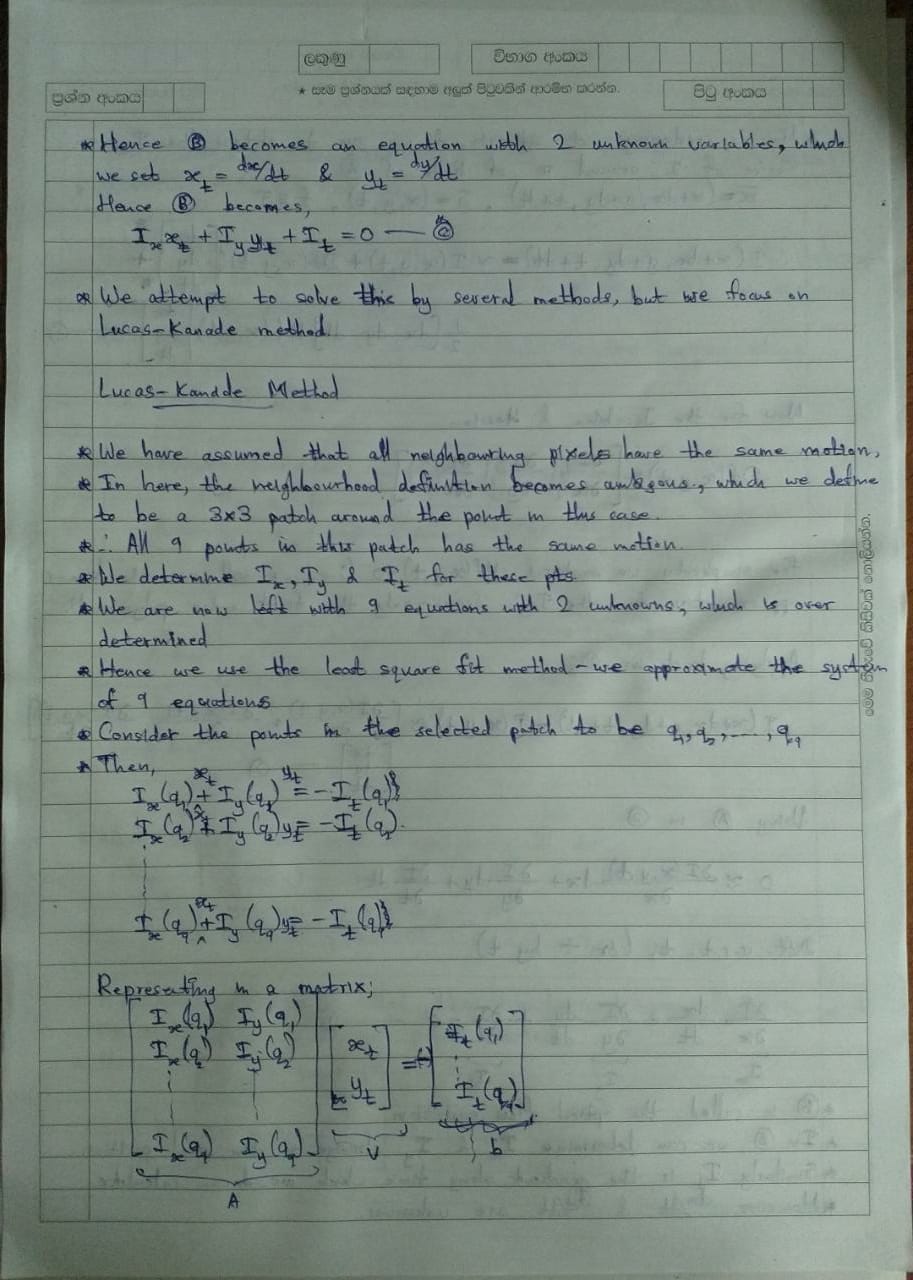 ලකුණු
විභාග අංකය
ප්‍රශ්න අංකය
★ සෑම ප්‍රශ්නයක් සඳහාම අලුත් පිටුවකින් ආරම්භ කරන්න.
පිටු අංකය
* Hence Ⓑ becomes an equation with 2 unknown variables, which
we set x_t = dx/dt & y_t = dy/dt
Hence Ⓑ becomes,
I_x x_t + I_y y_t + I_t = 0 — Ⓒ
* We attempt to solve this by several methods, but we focus on
Lucas-Kanade method.
Lucas-Kanade Method
* We have assumed that all neighbouring pixels have the same motion.
* In here, the neighbourhood definition becomes ambgous, which we define
to be a 3x3 patch around the point in this case.
* ∴ All 9 points in this patch has the same motion.
* We determine I_x, I_y & I_t for these pts.
* We are now left with 9 equations with 2 unknowns, which is over
determined
* Hence we use the least square fit method - we approximate the system
of 9 equations
* Consider the points in the selected patch to be q_1, q_2, ..., q_9
* Then,
I_x(q_1) x_t + I_y(q_1) y_t = -I_t(q_1)
I_x(q_2) x_t + I_y(q_2) y_t = -I_t(q_2)
I_x(q_9) x_t + I_y(q_9) y_t = -I_t(q_9)
Representing in a matrix;
I_x(q_1) I_y(q_1)
I_x(q_2) I_y(q_2)
I_x(q_9) I_y(q_9)
x_t
y_t
= -
I_t(q_1)
I_t(q_9)
A
v
b